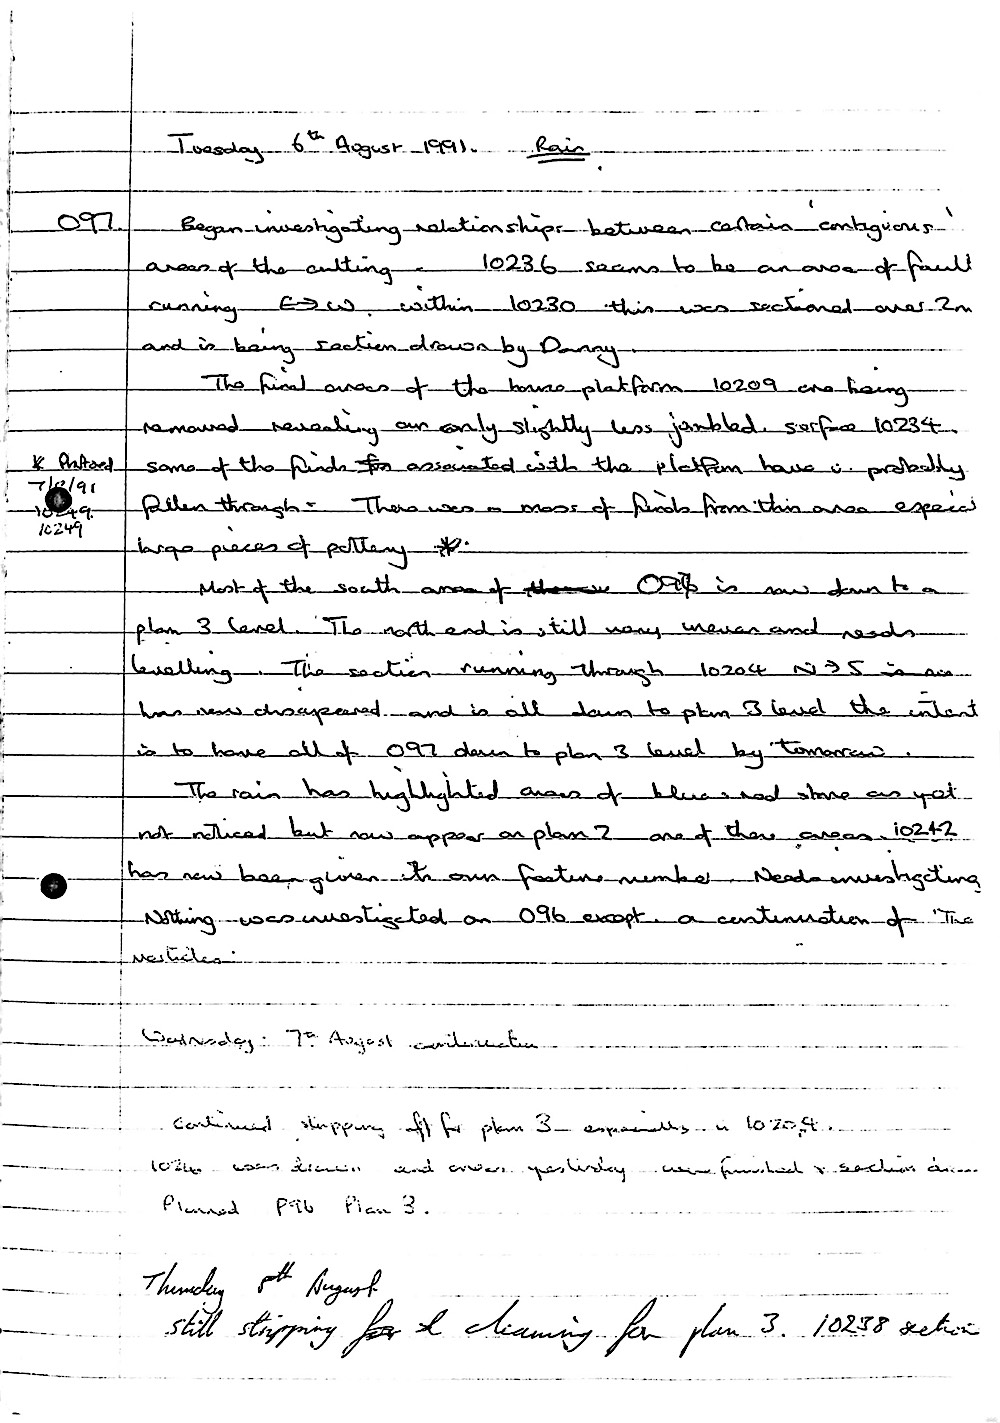 Tuesday 6th August 1991. Rain
097. Began investigating relationships between certain 'contigious'
areas of the cutting - 10236 seams to be an area of fault
running E→W. within 10230 this was sectioned over 2m
and is being section drawn by Danny.
The final areas of the house platform 10209 are being
removed revealing an only slightly less jumbled. surface 10234.
* Photoed
7/8/91
10249.
10249
some of the finds for associated with the platform have probably
fallen through - There was a mass of finds from this area especial
large pieces of pottery *.
Most of the south area of 096 is now down to a
plan 3 level. The north end is still very uneven and needs
levelling. The section running through 10204 N→S is
has now disapeared and is all down to plan 3 level the intent
is to have all of 097 down to plan 3 level by tomorrow.
The rain has highlighted areas of blue & red stone as yet
not noticed but now appear on plan 2 one of these areas 10242
has now been given its own feature number. Needs investigating
Nothing was investigated on 096 except. a continuation of 'The
Wednesday: 7th August
Continued stripping off for plan 3 - especially in 10204.
was drawn and areas yesterday were finished & section
Planned P96 Plan 3.
Thursday 8th August
still stripping for & cleaning for plan 3. 10238 section